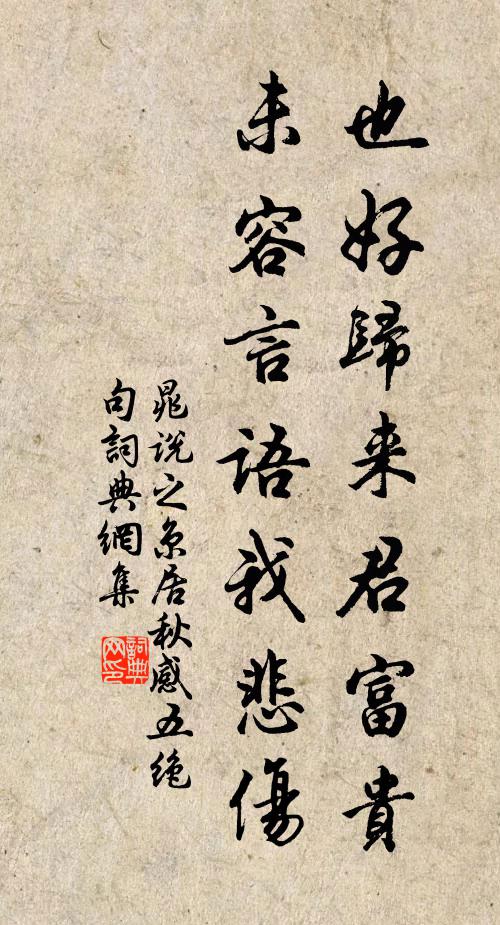 也好歸来君富貴
未容言語我悲傷
晁説之京居秋感五絶
句詞典網集
詞典
网印